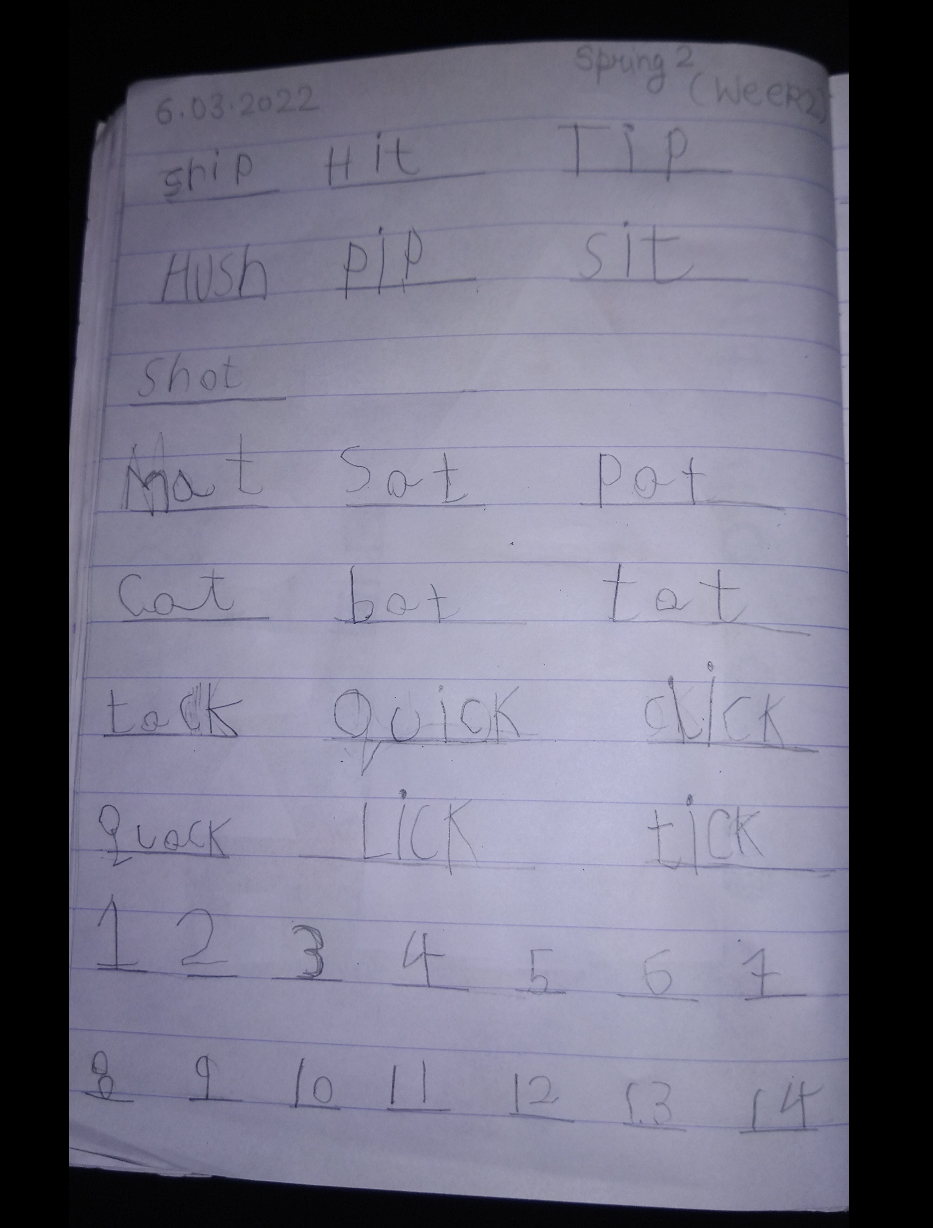 Spring 2
6.03.2022 (Week2)
ship Hit Tip
HUSh pip sit
Shot
Mat Sat Pat
Cat bat tat
tack Quick click
Quack Lick tick
1 2 3 4 5 6 7
8 9 10 11 12 13 14